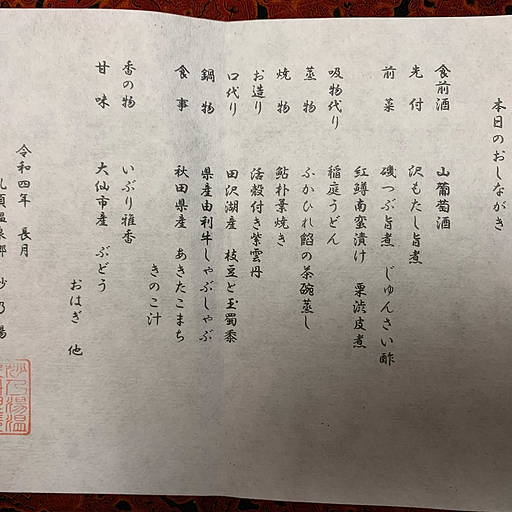 本日のおしながき
食前酒 山葡萄酒
先付 沢もたし旨煮
前菜 磯つぶ旨煮 じゅんさい酢
紅鱒南蛮漬け 栗渋皮煮
吸物代り 稲庭うどん
蒸物 ふかひれ餡の茶碗蒸し
焼物 鮎朴葉焼き
お造り 活殻付き紫雲丹
口代り 田沢湖産 枝豆と玉蜀黍
鍋物 県産由利牛しゃぶしゃぶ
食事 秋田県産 あきたこまち
きのこ汁
香の物 いぶり雅香
甘味 大仙市産 ぶどう
おはぎ 他
令和四年 長月
乳頭温泉郷 妙乃湯
妙乃湯温